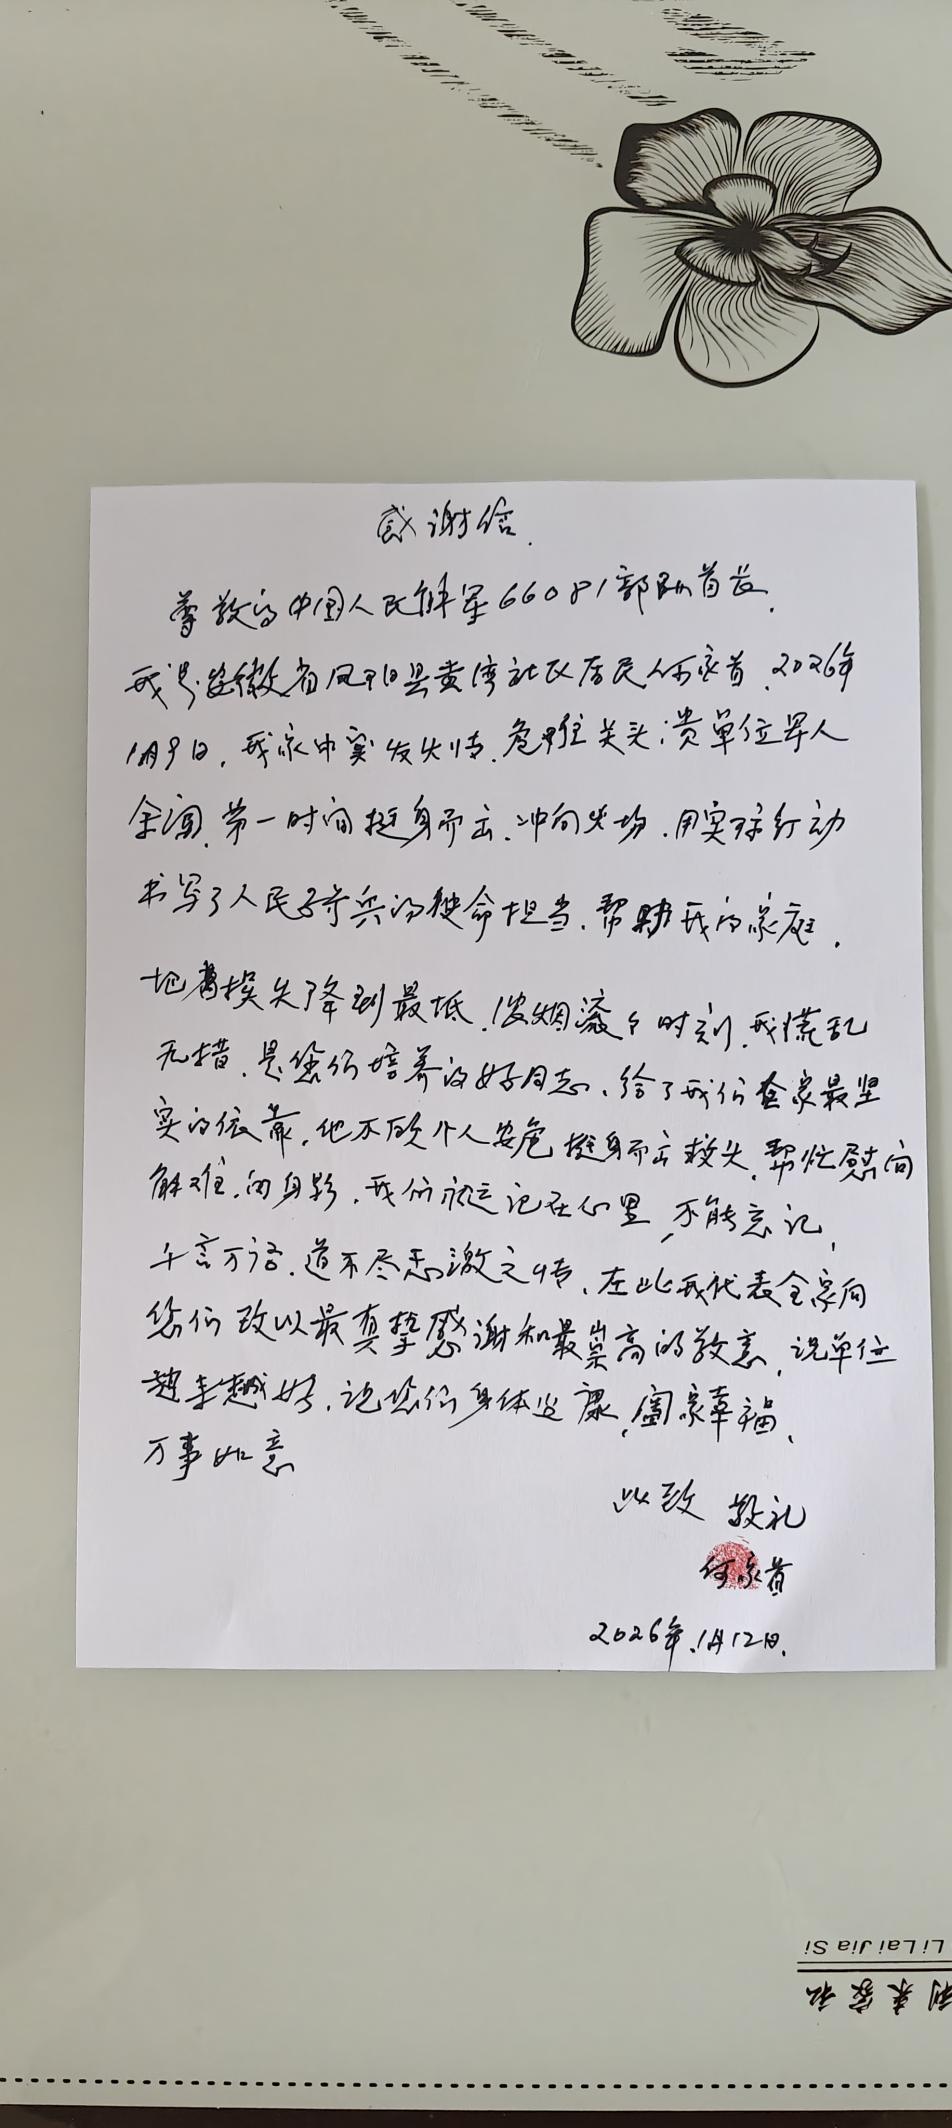 感谢信.
尊敬的中国人民解军66081部队首长.
我是安徽省凤阳县黄湾社区居民何家首.2026年
1月9日.我家中突发火情.危难关头:贵单位军人
余闯.第一时间挺身而出.冲向火场.用实际行动
书写了人民子弟兵的使命担当.帮助我的家庭.
把损失降到最低.浓烟滚滚时刻.我慌乱
无措.是您们培养的好同志.给了我们全家最坚
实的依靠.他不顾个人安危挺身而出救火.帮忙慰问
解难.的身影.我们永远记在心里,不能忘记,
千言万语.道不尽感激之情.在此我代表全家向
您们致以最真挚感谢和最崇高的敬意.祝单位
越来越好.祝您们身体健康,阖家幸福、
万事如意
此致 敬礼
何家首
2026年.1月12日.
Li Lai Jia Si
利来家私